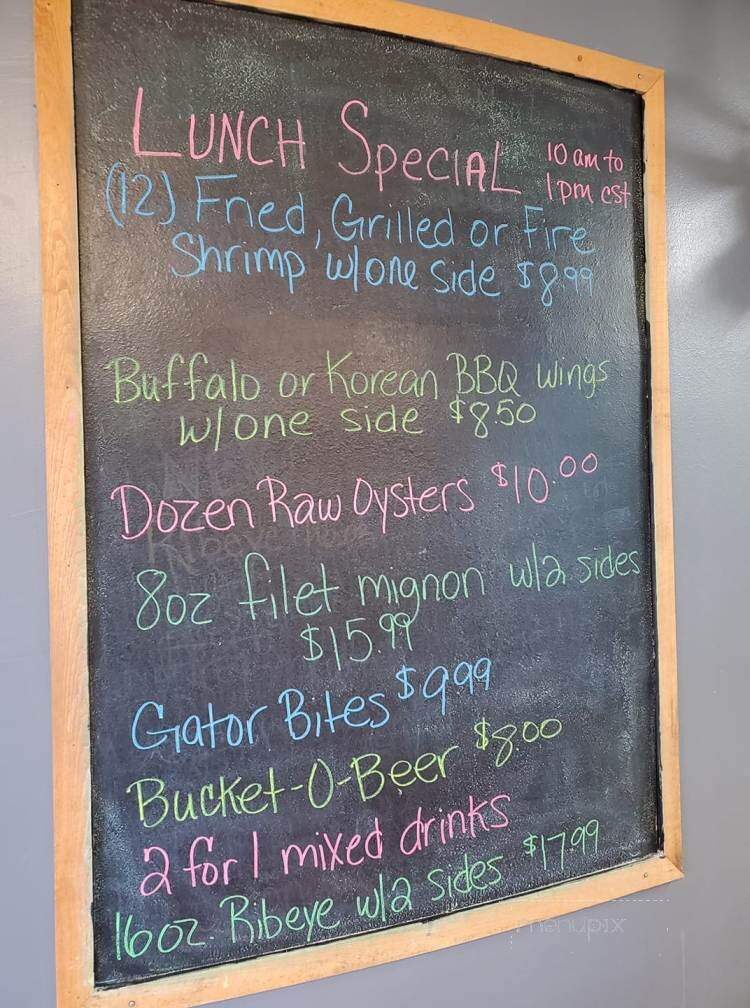 LUNCH SpeciAL
10 am to
1pm cst
(12) Fried, Grilled or Fire
Shrimp w/one side $8.99
Buffalo or Korean BBQ wings
w/one side $8.50
Dozen Raw Oysters $10.00
8oz filet mignon w/2 sides
$15.99
Gator Bites $9.99
Bucket-O-Beer $8.00
2 for 1 mixed drinks
16oz. Ribeye w/2 sides $17.99
menupix